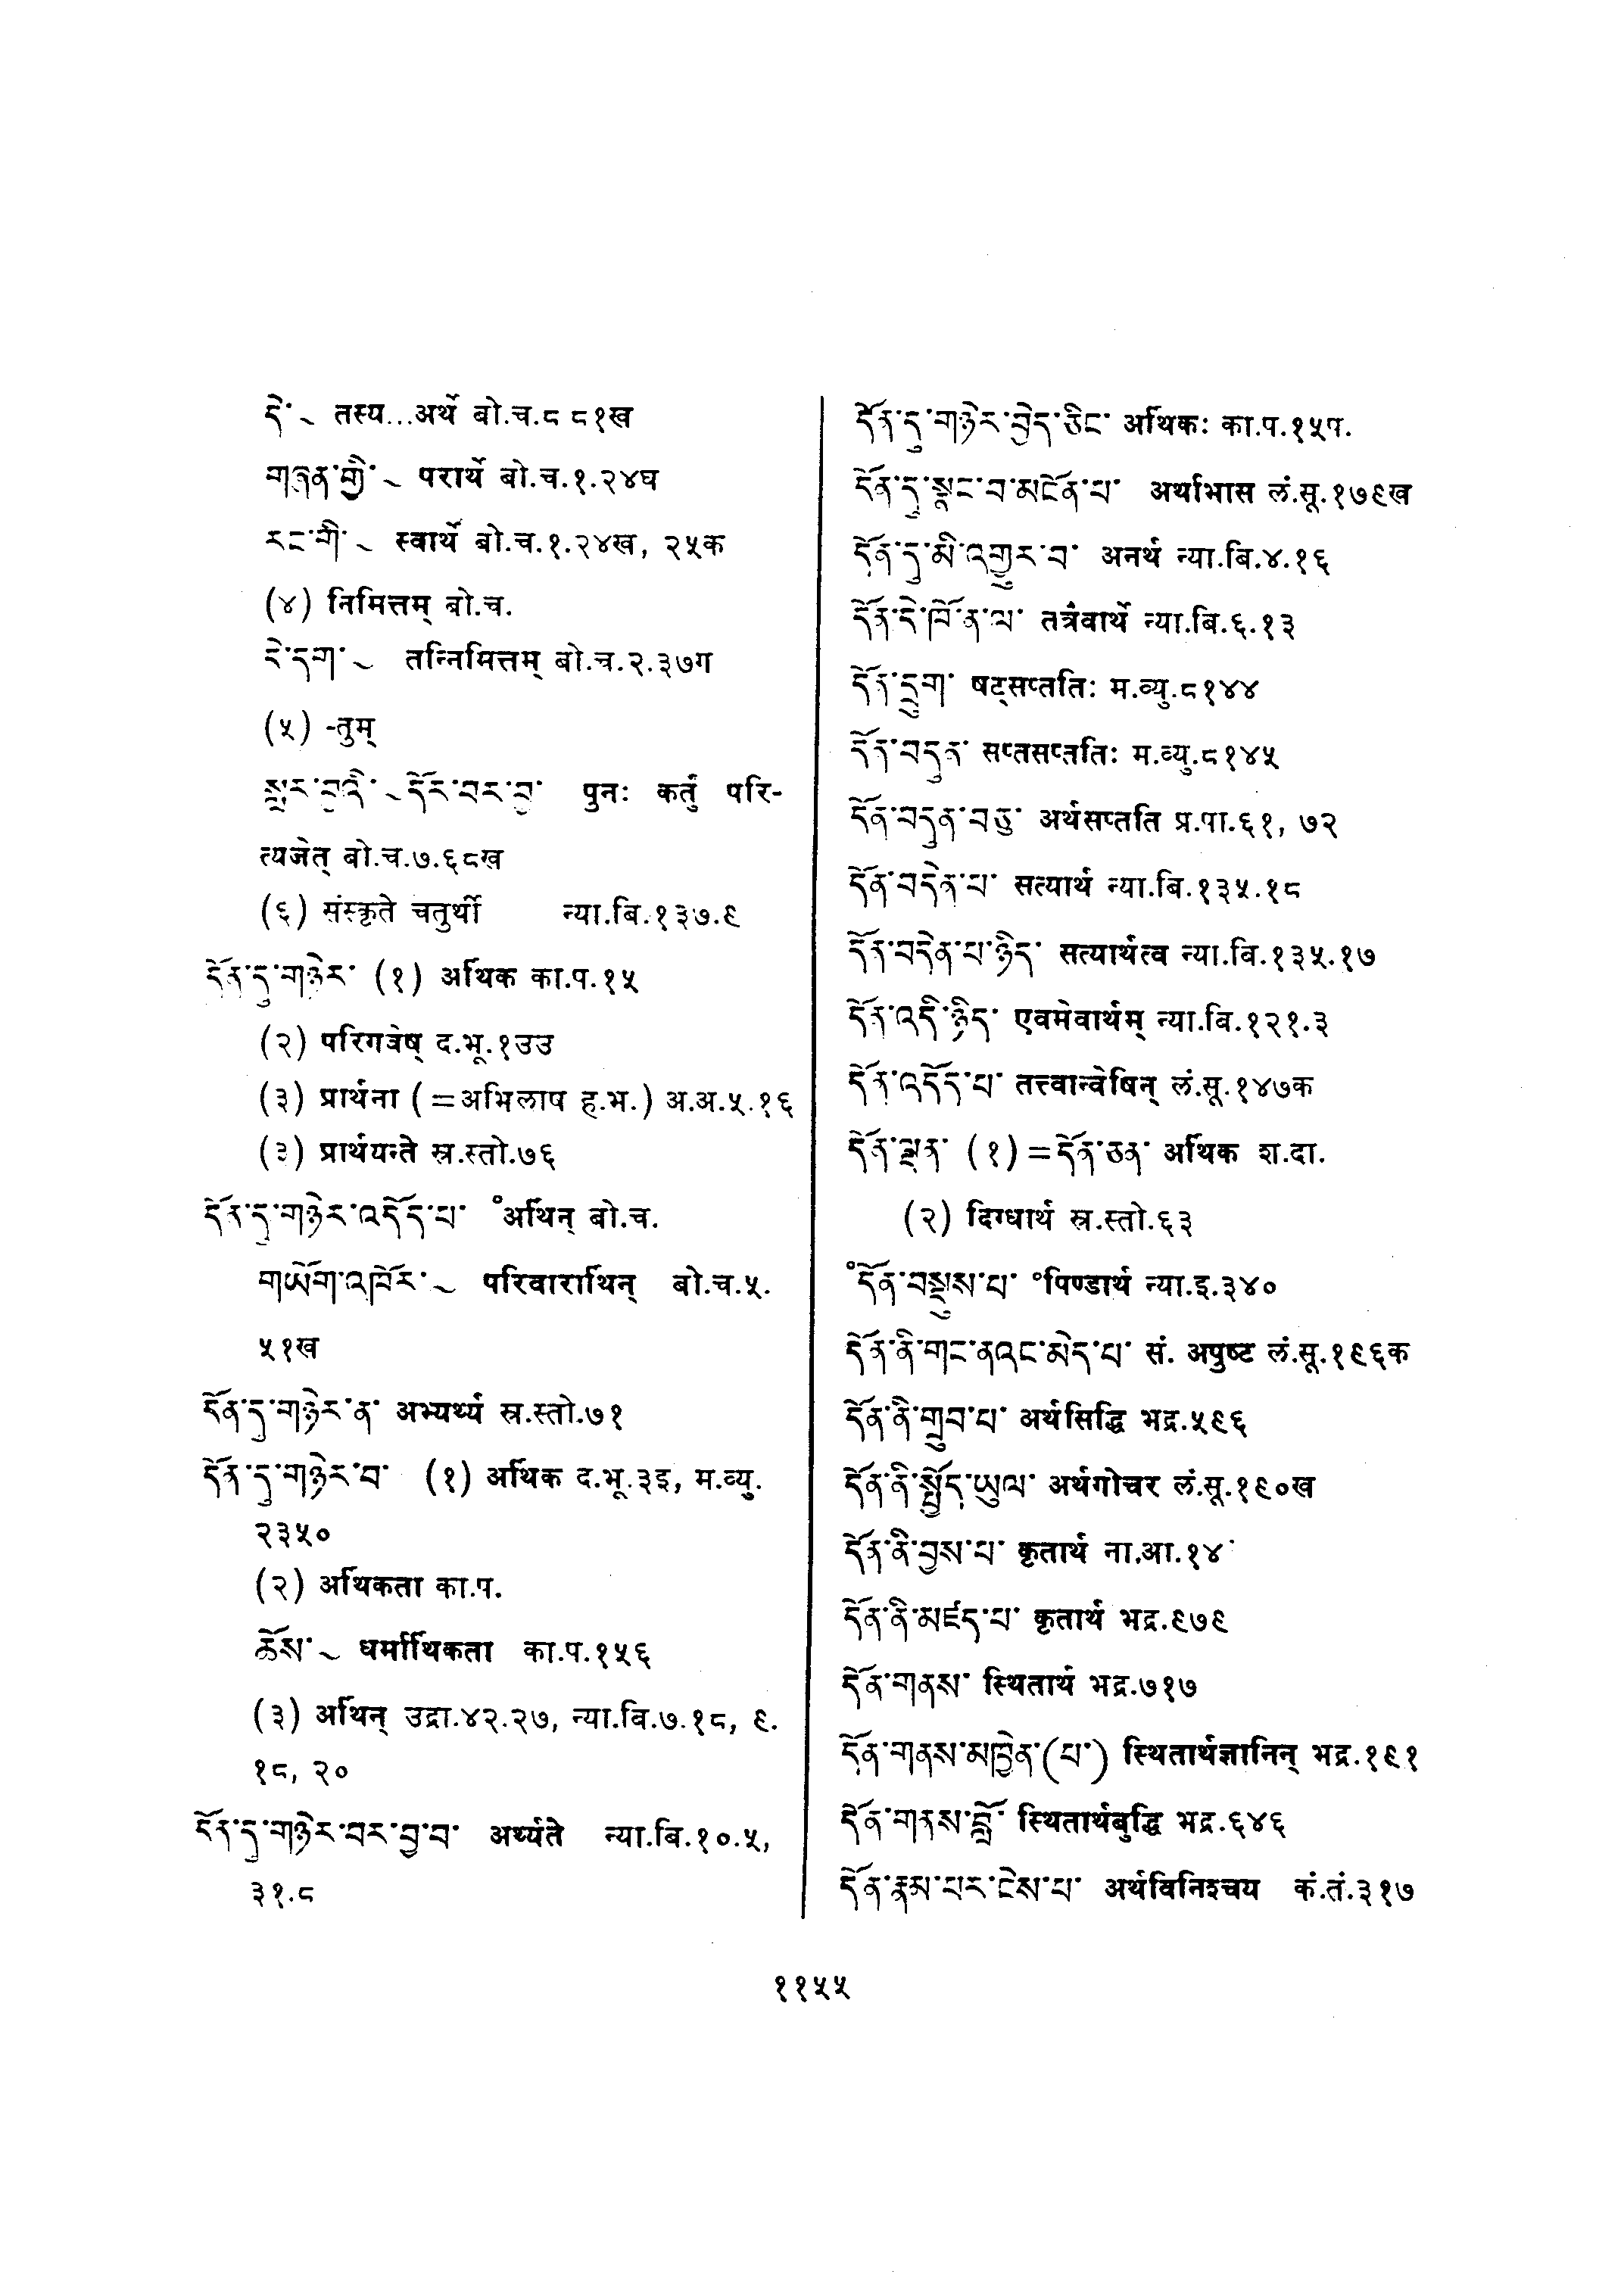 དེ་ ~ तस्य...अर्थे बो.च.८ ८१ख
གཞན་གྱི་ ~ परार्थे बो.च.१.२४घ
རང་གི་ ~ स्वार्थे बो.च.१.२४ख, २५क
(४) निमित्तम् बो.च.
དེ་དག་ ~ तन्निमित्तम् बो.च.२.३७ग
(५) -तुम्
སླར་བྱའི་ ~ དོར་བར་བྱ་ पुनः कर्तुं परि-
त्यजेत् बो.च.७.६८ख
(६) संस्कृते चतुर्थी न्या.बि.१३७.९
དོན་དུ་གཉེར་ (१) अर्थिक का.प.१५
(२) परिगवेष् द.भू.१उउ
(३) प्रार्थना (=अभिलाष ह.भ.) अ.अ.५.१६
(३) प्रार्थयन्ते स्र.स्तो.७६
དོན་དུ་གཉེར་འདོད་པ་ °अर्थिन् बो.च.
གཡོག་འཁོར་ ~ परिवारार्थिन् बो.च.५.
५१ख
དོན་དུ་གཉེར་ན་ अभ्यर्थ्य स्र.स्तो.७१
དོན་དུ་གཉེར་བ་ (१) अर्थिक द.भू.३इ, म.व्यु.
२३५०
(२) अर्थिकता का.प.
ཆོས་ ~ धर्मार्थिकता का.प.१५६
(३) अर्थिन् उद्रा.४२.२७, न्या.बि.७.१८, ९.
१८, २०
དོན་དུ་གཉེར་བར་བྱ་བ་ अर्थ्यते न्या.बि.१०.५,
३१.८
དོན་དུ་གཉེར་བྱེད་ཅིང་ अर्थिकः का.प.१५प.
དོན་དུ་སྣང་བ་མངོན་པ་ अर्थाभास लं.सू.१७९ख
དོན་དུ་མི་འགྱུར་བ་ अनर्थ न्या.बि.४.१६
དོན་དེ་ཁོ་ན་ལ་ तत्रैवार्थे न्या.बि.६.१३
དོན་དྲུག་ षट्सप्ततिः म.व्यु.८१४४
དོན་བདུན་ सप्तसप्ततिः म.व्यु.८१४५
དོན་བདུན་བཅུ་ अर्थसप्तति प्र.पा.६१, ७२
དོན་བདེན་པ་ सत्यार्थ न्या.बि.१३५.१८
དོན་བདེན་པ་ཉིད་ सत्यार्थत्व न्या.बि.१३५.१७
དོན་འདི་ཉིད་ एवमेवार्थम् न्या.बि.१२१.३
དོན་འདོད་པ་ तत्त्वान्वेषिन् लं.सू.१४७क
དོན་ལྡན་ (१) =དོན་ཅན་ अर्थिक श.दा.
(२) दिग्धार्थ स्र.स्तो.६३
°དོན་བསྡུས་པ་ °पिण्डार्थ न्या.इ.३४०
དོན་ནི་གང་ནའང་མེད་པ་ सं. अपुष्ट लं.सू.१९६क
དོན་ནི་གྲུབ་པ་ अर्थसिद्धि भद्र.५९६
དོན་ནི་སྤྱོད་ཡུལ་ अर्थगोचर लं.सू.१९०ख
དོན་ནི་བྱས་པ་ कृतार्थ ना.आ.१४
དོན་ནི་མཛད་པ་ कृतार्थ भद्र.९७९
དོན་གནས་ स्थितार्थ भद्र.७१७
དོན་གནས་མཁྱེན་(པ་) स्थितार्थज्ञानिन् भद्र.१९१
དོན་གནས་བློ་ स्थितार्थबुद्धि भद्र.६४६
དོན་རྣམ་པར་ངེས་པ་ अर्थविनिश्चय कं.तं.३१७
११५५